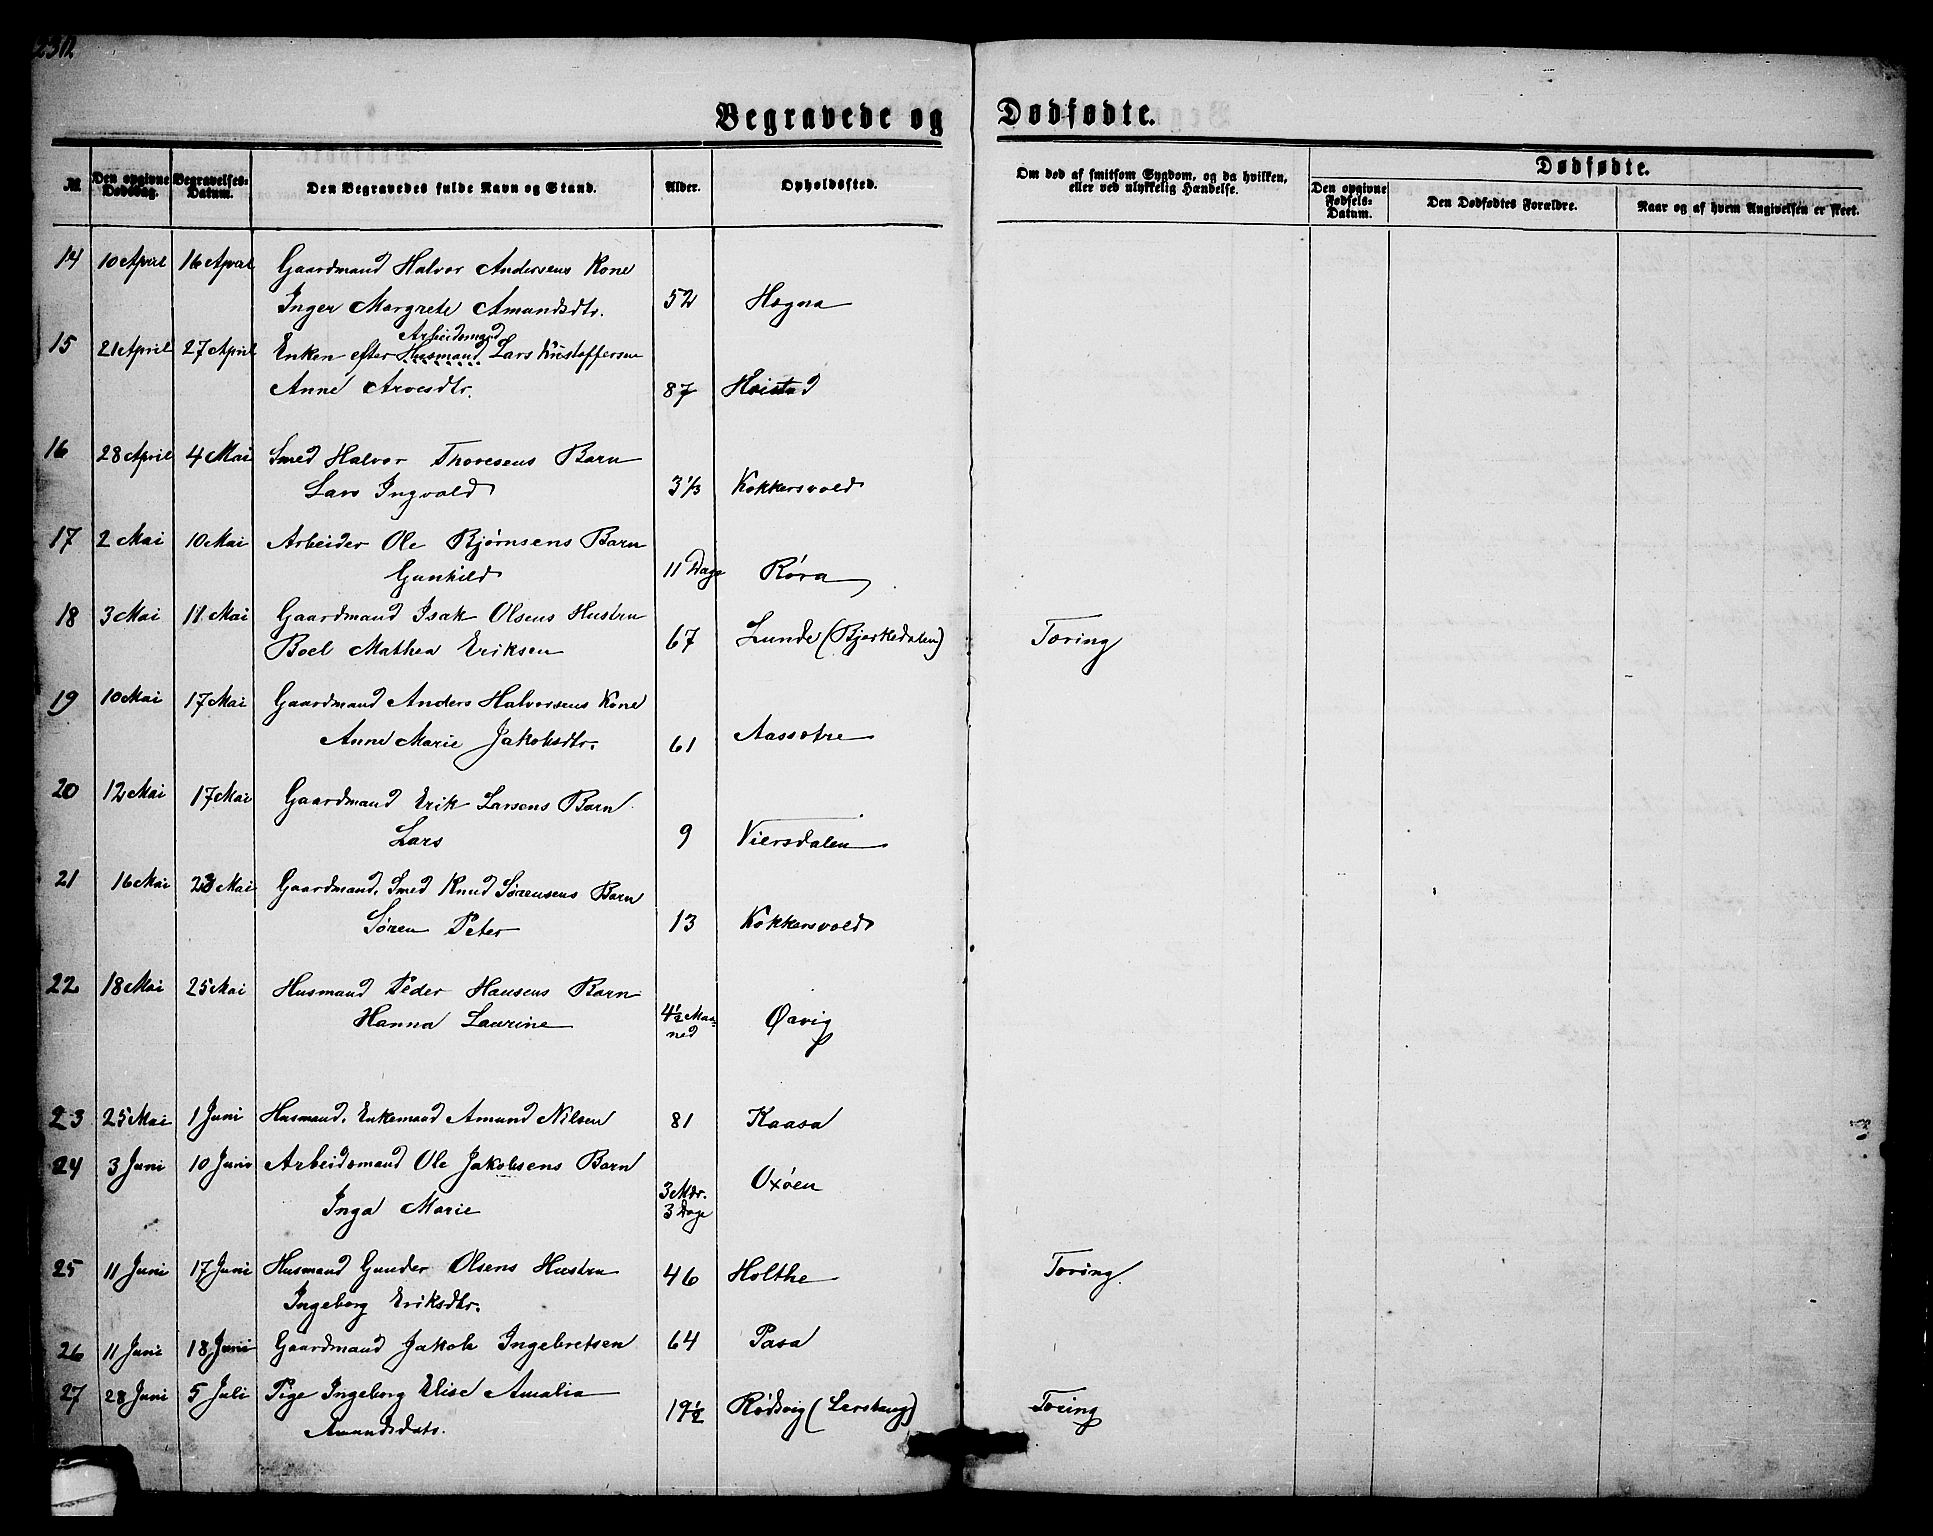 Begravede og Dødfødte.
№ Den opgivne Dødsdag. Begravelses-Datum. Den Begravedes fulde Navn og Stand. Alder. Opholdssted. Om død af smitsom Sygdom, og da hvilken, eller ved ulykkelig Hændelse. Dødfødte.
Den opgivne Fødsels-Datum. Den Dødfødtes Forældre. Naar og af hvem Angivelsen er skeet.
14 10 April 16 April Gaardmand Halvor Andersens Kone
Inger Margrete Amundsdtr. 52 Hogna
Arbeidsmand
15 21 April 27 April Enken efter Husmand Lars Kristoffersen
Anne Arvesdtr. 87 Hoistad
16 28 April 4 Mai Smed Halvor Thoresens Barn
Lars Ingvald 3 1/3 Kokkersvold
17 2 Mai 10 Mai Arbeider Ole Bjørnsens Barn
Gunhild 11 Dage Røra
18 3 Mai 11 Mai Gaardmand Isak Olsens Hustru
Boel Mathea Eriksen 67 Lunde (Bjerkedalen) Tæring
19 10 Mai 17 Mai Gaardmand Anders Halvorsens Kone
Anne Marie Jakobsdtr. 61 Aassotre
20 12 Mai 17 Mai Gaardmand Erik Larsens Barn
Lars 9 Viersdalen
21 16 Mai 23 Mai Gaardmand. Smed Knud Sørensens Barn
Søren Peter 13 Kokkersvold
22 18 Mai 25 Mai Husmand Peder Hansens Barn
Hanna Laurine 4 1/2 Maaned Ørvig
23 25 Mai 1 Juni Husmand. Enkemand Amund Nilsen 81 Kaasa
24 3 Juni 10 Juni Arbeidsmand Ole Jakobsens Barn
Inga Marie 3 Mdr. 3 Dage Oxøen
25 11 Juni 17 Juni Husmand Gunder Olsens Hustru 46 Holthe Tæring.
Ingeborg Eriksdtr.
26 11 Juni 18 Juni Gaardmand Jakob Ingebretsen 64 Pasa
27 28 Juni 5 Juli Pige Ingeborg Elise Amalia
Amandsdatr. 19 1/2 Rødsvig (Lerstang) Tæring